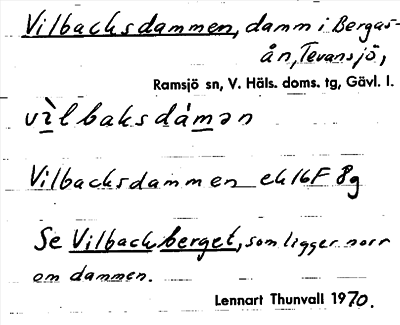 Vilbacksdammen, damm i Bergas-
ån, Tevansjö,
Ramsjö sn, V. Häls. doms. tg, Gävl. l.
vìlbaksdámən
Vilbacksdammen ek 16F 8g
Se Vilbackberget, som ligger norr
om dammen.
Lennart Thunvall 1970.